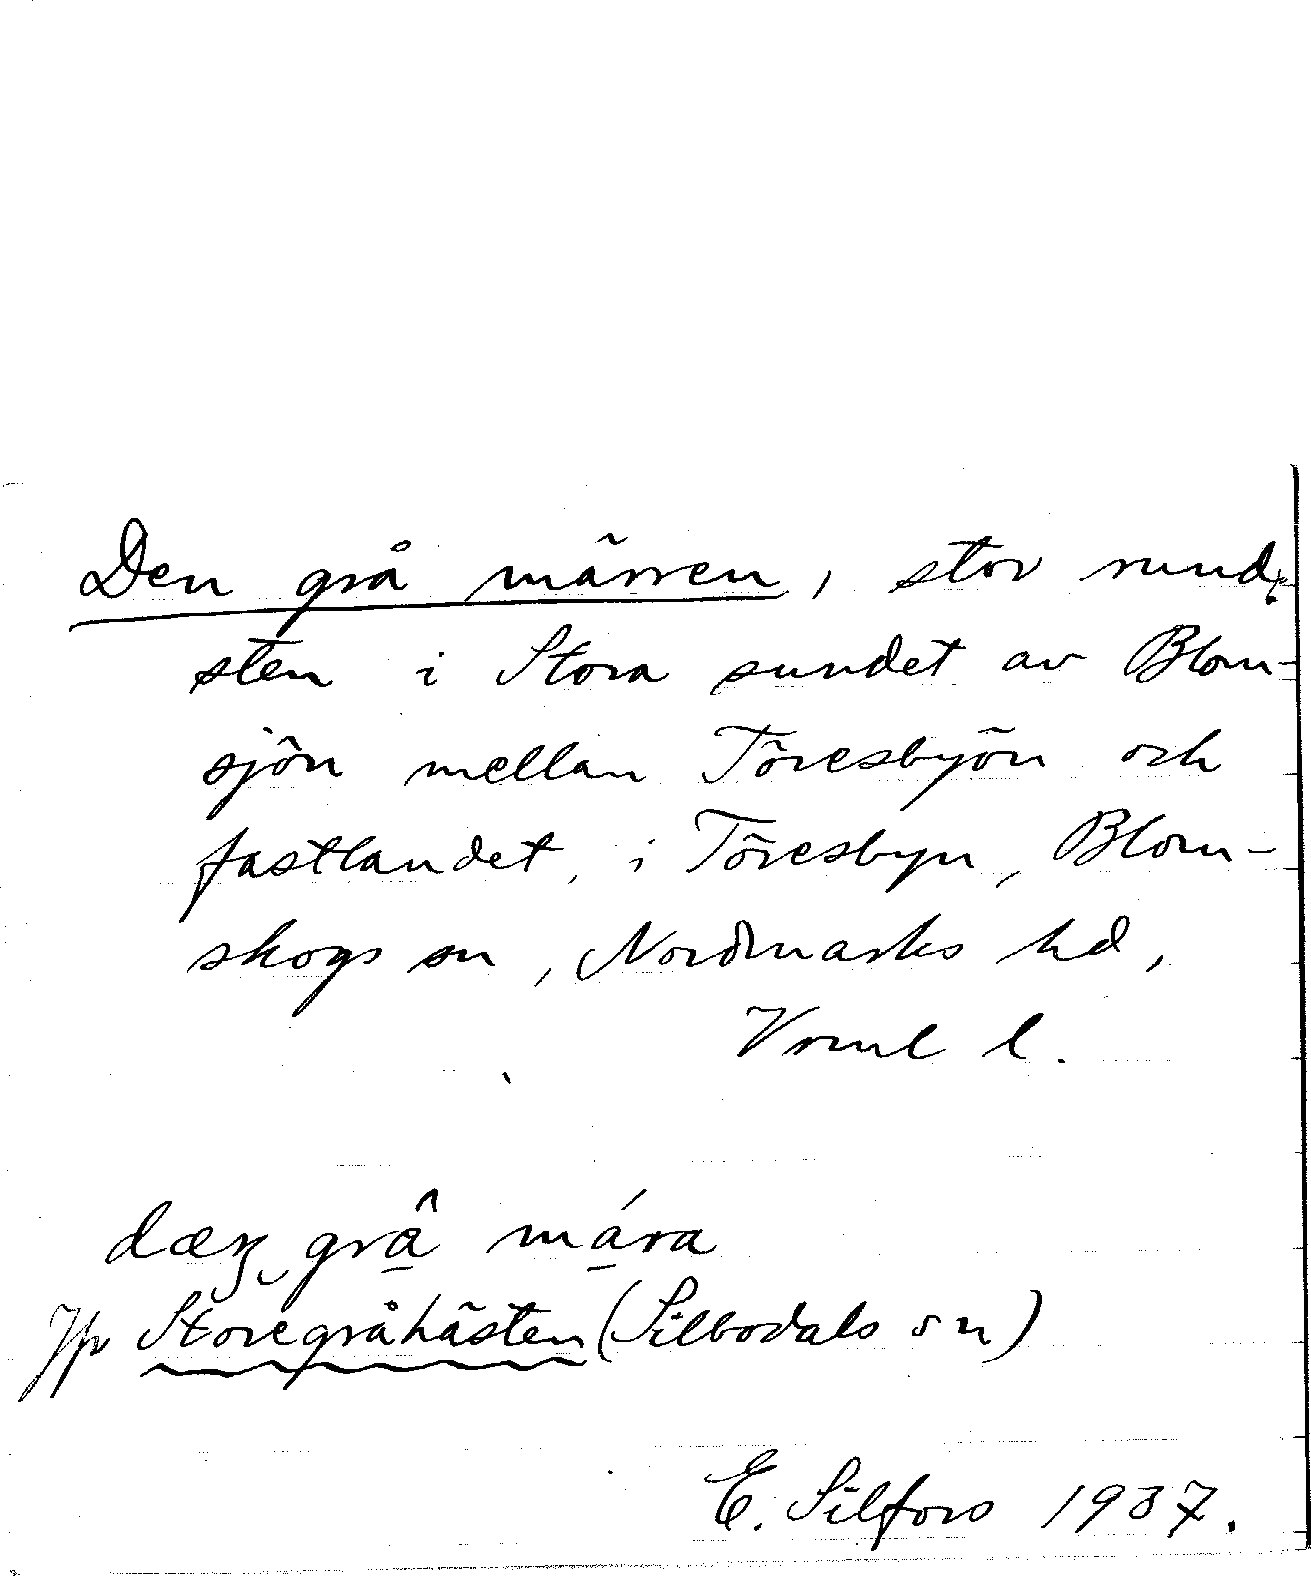 Den grå märren, stor rund-
sten i Stora sundet av Blom-
sjön mellan Töresbyön och
fastlandet, i Töresbyn, Blom-
skogs sn, Nordmarks hd,
Vrml l.
grâ mára
Jfr Storegråhästen (Silbodals sn)
E. Silfors 1937.